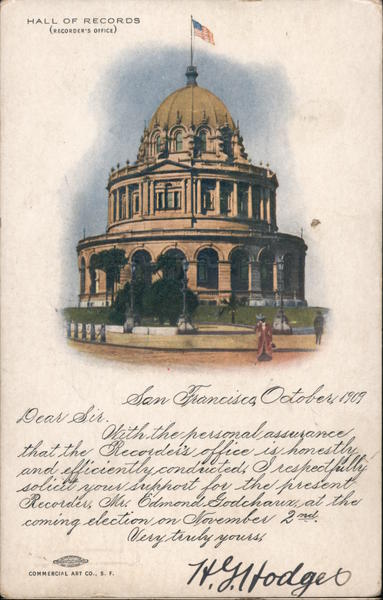 HALL OF RECORDS
(RECORDER'S OFFICE)
San Francisco, October, 1909
Dear Sir.
With the personal assurance
that the Recorder's office is honestly
and efficiently conducted, I respectfully
solicit your support for the present
Recorder, Mr. Edmond Godchaux, at the
coming election on November 2nd.
Very truly yours,
H. G. Hodges
COMMERCIAL ART CO., S. F.